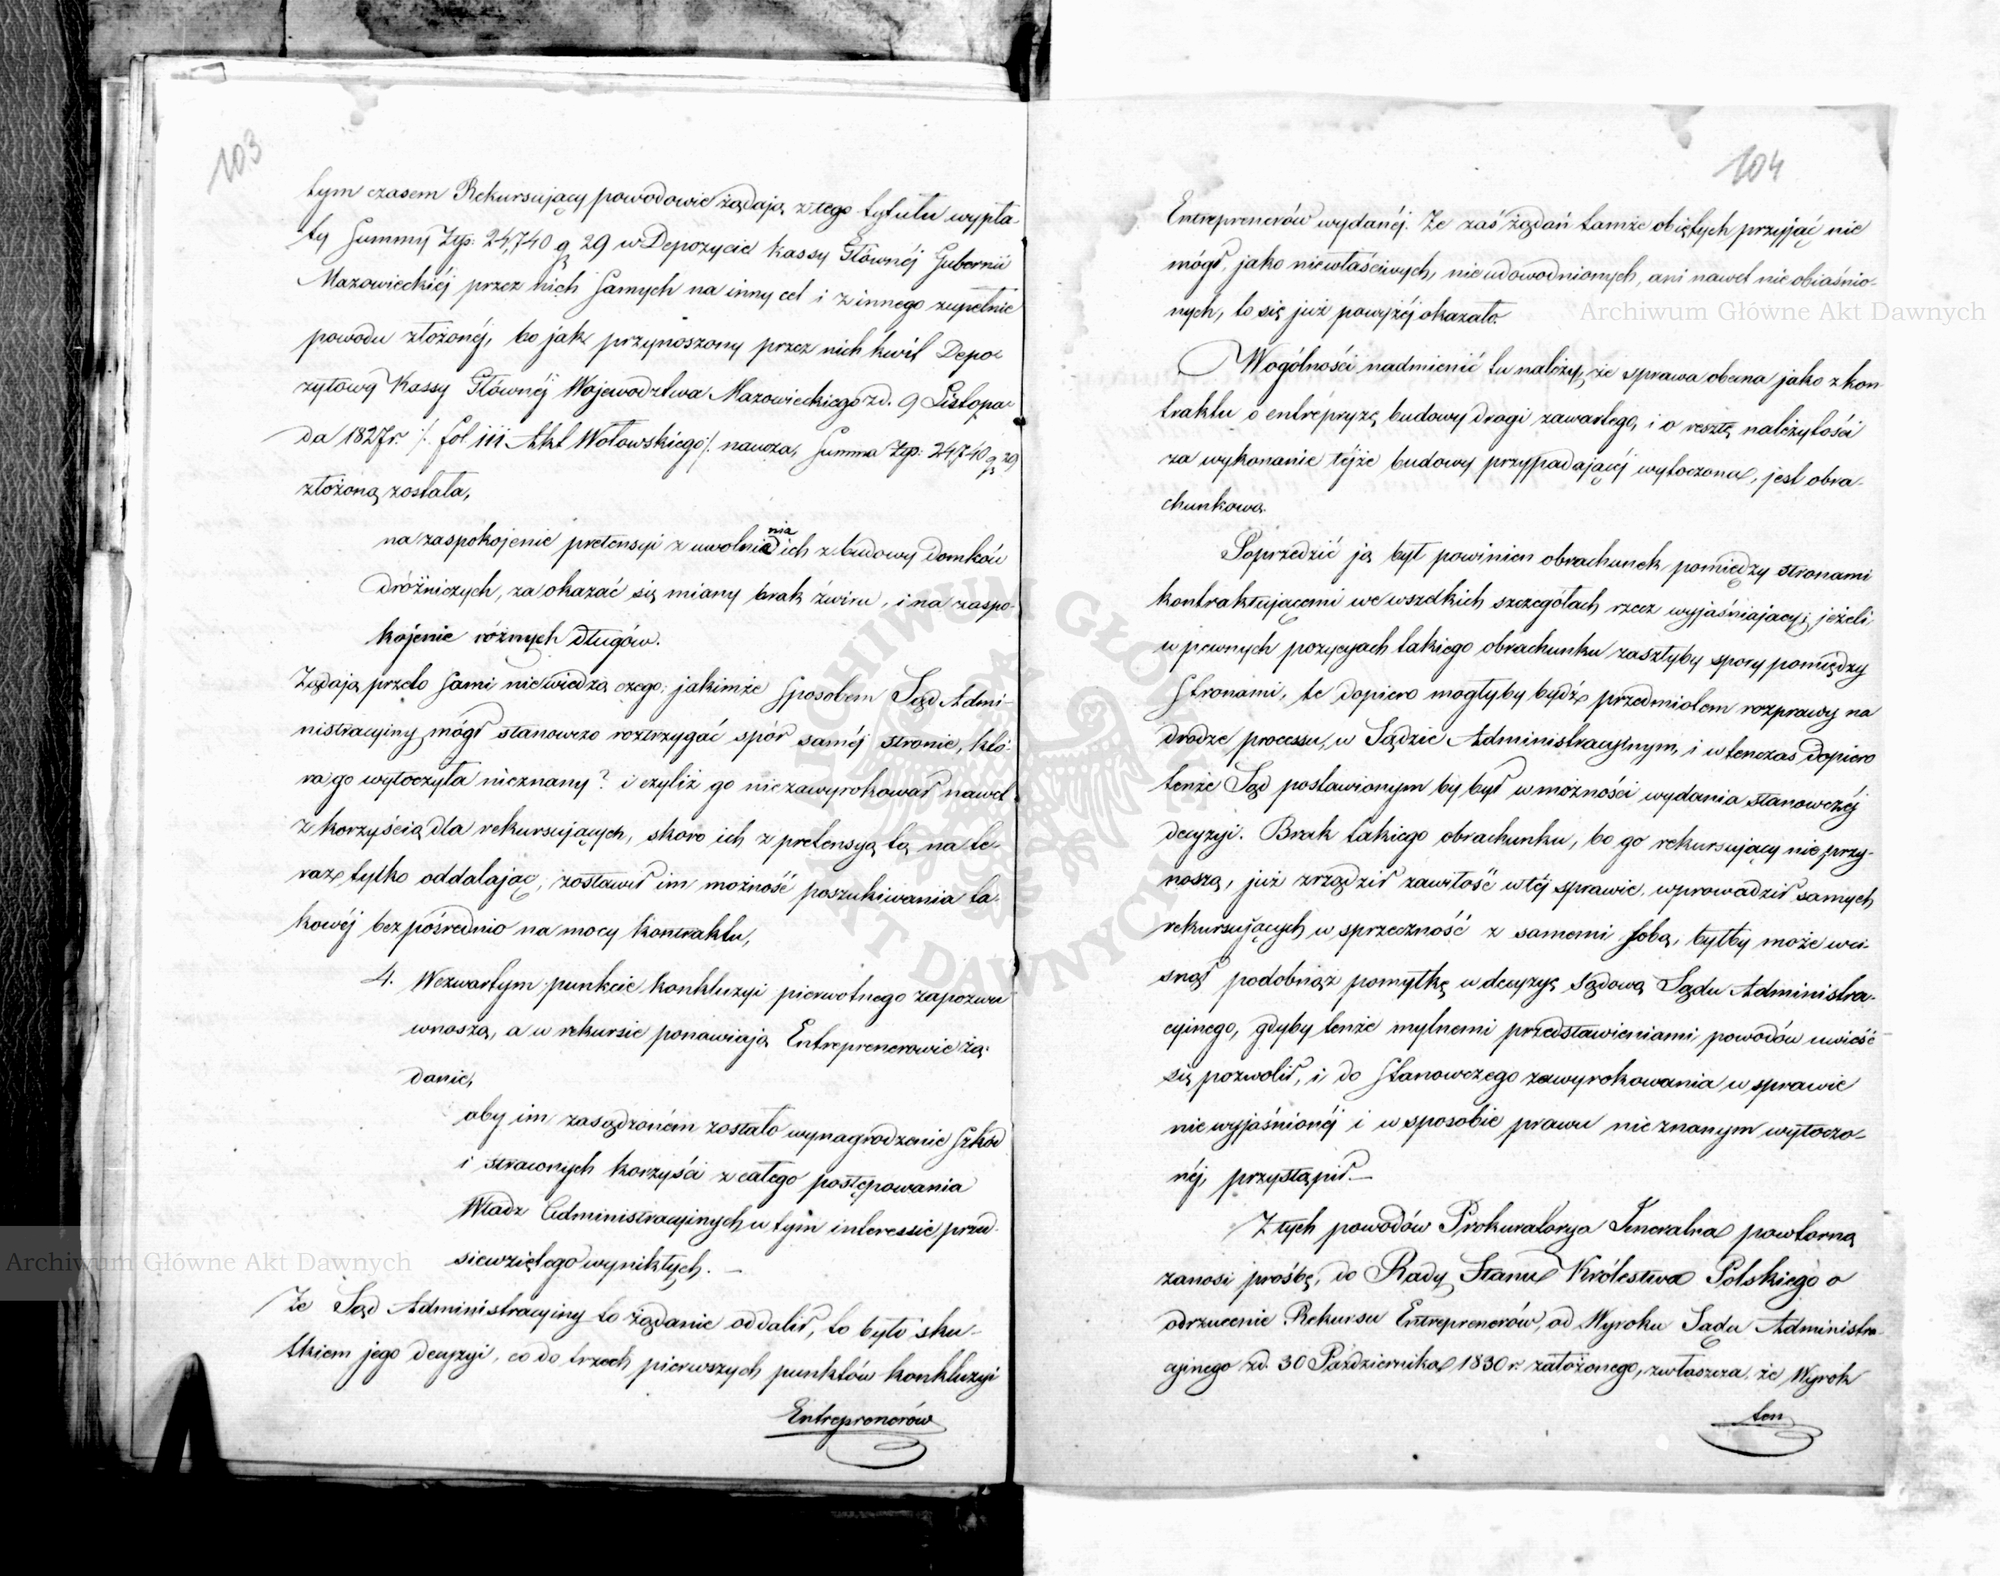 103
tym czasem Rekursujący powodowie żądają z tego tytułu wypła-
ty Summy Złp: 24,740 g 29 w Depozycie Kassy Głównéj Gubernii
Mazowieckiéj przez nich samych na inny cel i z innego zupełnie
powodu złożonéj, bo jak przynoszony przez nich kwit Depo-
zytowy Kassy Głównéj Województwa Mazowieckiego z d. 9 Listopa-
da 1827 r. /. fol 111 Akt Wołowskiego ./ naucza, Summa Złp: 24740 g 29
złożoną została,
na zaspokojenie pretensyi z uwolnienia ich z budowy domków
dróżniczych, za okazać się miany brak żwiru, i na zaspo-
kojenie różnych długów.
Żądają przeto sami niewiedzą czego; jakimże sposobem Sąd Admi-
nistracyiny mógł stanowczo roztrzygać spór saméj stronie, któ-
ra go wytoczyła nieznany? i czyliż go niezawyrokował nawet
z korzyścią dla rekursujących, skoro ich z pretensyą tą na te-
raz tylko oddalając, zostawił im możność poszukiwania ta-
kowéj bezpośrednio na mocy kontraktu,
4. W czwartym punkcie konkluzyi pierwotnego zapozwu
wnoszą, a w rekursie ponawiają Entreprenerowie żą-
danie,
aby im zasądzoném zostało wynagrodzenie szkód
i straconych korzyści z całego postępowania
Władz Administracyinych w tym interessie przed-
siewziętego wynikłych. —
Że Sąd Administracyiny to żądanie oddalił, to było sku-
tkiem jego decyzyi, co do trzech pierwszych punktów konkluzyi
Entreprenerów
104
Entreprenerów wydanéj. Że zaś żądań tamże objętych przyjąć nie
mógł, jako niewłaściwych, nieudowodnionych, ani nawet nieobiaśnio-
nych, to się już powyżéj okazało.
Wogólności nadmienić tu należy, że sprawa obecna jako z kon
traktu o entrepryzę budowy drogi zawartego, i o resztę należytości
za wykonanie téjże budowy przypadającéj wytoczona, jest obra-
chunkową.
Poprzedzić ją był powinien obrachunek pomiędzy stronami
kontraktującemi we wszelkich szczegółach rzecz wyjaśniający; jeżeli
w pewnych pozycyach takiego obrachunku zaszłyby spory pomiędzy
stronami, te dopiero mogłyby bydź przedmiotem rozprawy na
drodze processu, w Sądzie Administracyjnym, i w tenczas dopiero
tenże Sąd postawionym by był w możności wydania stanowczéj
decyzyi. Brak takiego obrachunku, bo go rekursujący nie przy-
noszą, już zrządził zawiłość w téj sprawie, wprowadził samych
rekursujących w sprzeczność z samemi sobą, byłby może wci-
snął podobnąż pomyłkę w decyzyę sądową Sądu Administra-
cyinego, gdyby tenże mylnemi przedstawieniami powodów uwieść
się pozwolił, i do stanowczego zawyrokowania w sprawie
niewyjaśnionéj i w sposobie prawu nieznanym wytoczo-
néj, przystąpił. —
Z tych powodów Prokuratorya Jeneralna powtórną
zanosi prośbę, do Rady Stanu Królestwa Polskiego o
odrzucenie Rekursu Entreprenerów, od Wyroku Sądu Administra-
cyinego z d. 30 Października 1830 r. założonego, zwłaszcza, że Wyrok
ten
Archiwum Główne Akt Dawnych
Archiwum Główne Akt Dawnych
ARCHIWUM GŁÓWNE AKT DAWNYCH